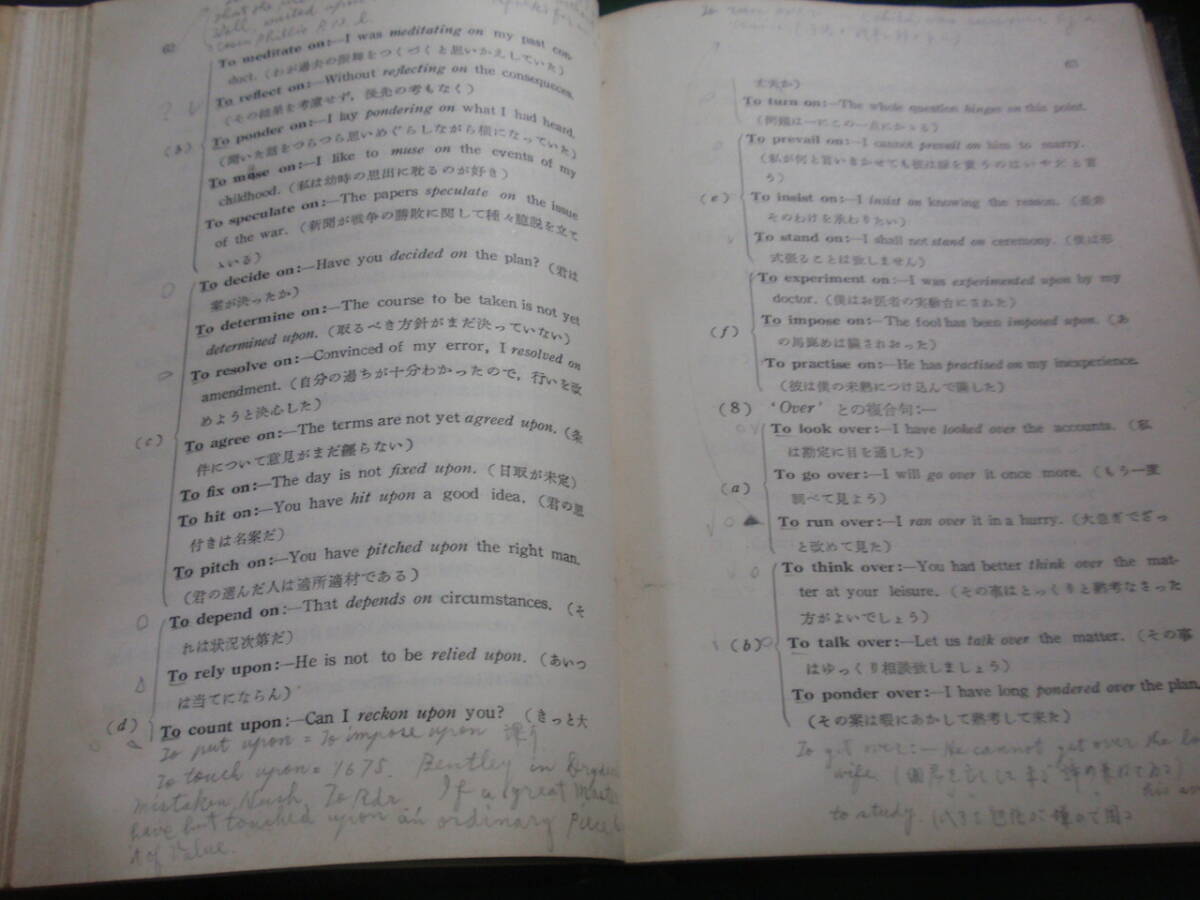 62
To meditate on:—I was meditating on my past con-
duct. (わが過去の振舞をつくづくと思いかえしていた)
To reflect on:—Without reflecting on the consequences.
(その結果を考慮せず，後先の考もなく)
(b)
To ponder on:—I lay pondering on what I had heard.
(聞いた話をつらつら思いめぐらしながら横になっていた)
To muse on:—I like to muse on the events of my
childhood. (私は幼時の思出に耽るのが好き)
To speculate on:—The papers speculate on the issue
of the war. (新聞が戦争の勝敗に関して種々臆説を立て
ゝいる)
To decide on:—Have you decided on the plan? (君は
案が決ったか)
To determine on:—The course to be taken is not yet
determined upon. (取るべき方針がまだ決っていない)
To resolve on:—Convinced of my error, I resolved on
amendment. (自分の過ちが十分わかったので，行いを改
めようと決心した)
(c)
To agree on:—The terms are not yet agreed upon. (条
件について意見がまだ纒らない)
To fix on:—The day is not fixed upon. (日取が未定)
To hit on:—You have hit upon a good idea. (君の思
付きは名案だ)
To pitch on:—You have pitched upon the right man.
(君の選んだ人は適所適材である)
To depend on:—That depends on circumstances. (そ
れは状況次第だ)
To rely upon:—He is not to be relied upon. (あいつ
は当てにならん)
(d)
To count upon:—Can I reckon upon you? (きっと大
To put upon = To impose upon
To touch upon = 1675. Bentley in
mistaken. To Rdr. If a great
have but touched upon an ordinary Piece
of Value.
63
丈夫か)
To turn on:—The whole question hinges on this point.
(問題は一にこの一点にかゝる)
To prevail on:—I cannot prevail on him to marry.
(私が何と言いきかせても彼は嫁を貰うのはいやだと言
う)
(e)
To insist on:—I insist on knowing the reason. (是非
そのわけを承わりたい)
To stand on:—I shall not stand on ceremony. (僕は形
式張ることは致しません)
To experiment on:—I was experimented upon by my
doctor. (僕はお医者の実験台にされた)
(f)
To impose on:—The fool has been imposed upon. (あ
の馬鹿めは騙されおった)
To practise on:—He has practised on my inexperience.
(彼は僕の未熟につけ込んで騙した)
(8) 'Over' との複合句:—
To look over:—I have looked over the accounts. (私
は勘定に目を通した)
(a)
To go over:—I will go over it once more. (もう一度
調べて見よう)
To run over:—I ran over it in a hurry. (大急ぎでざっ
と改めて見た)
To think over:—You had better think over the mat-
ter at your leisure. (その事はとっくりと熟考なさった
方がよいでしょう)
(b)
To talk over:—Let us talk over the matter. (その事
はゆっくり相談致しましょう)
To ponder over:—I have long pondered over the plan.
(その案は暇にあかして熟考して来た)
To get over:—He cannot get over the
wife.
to study.